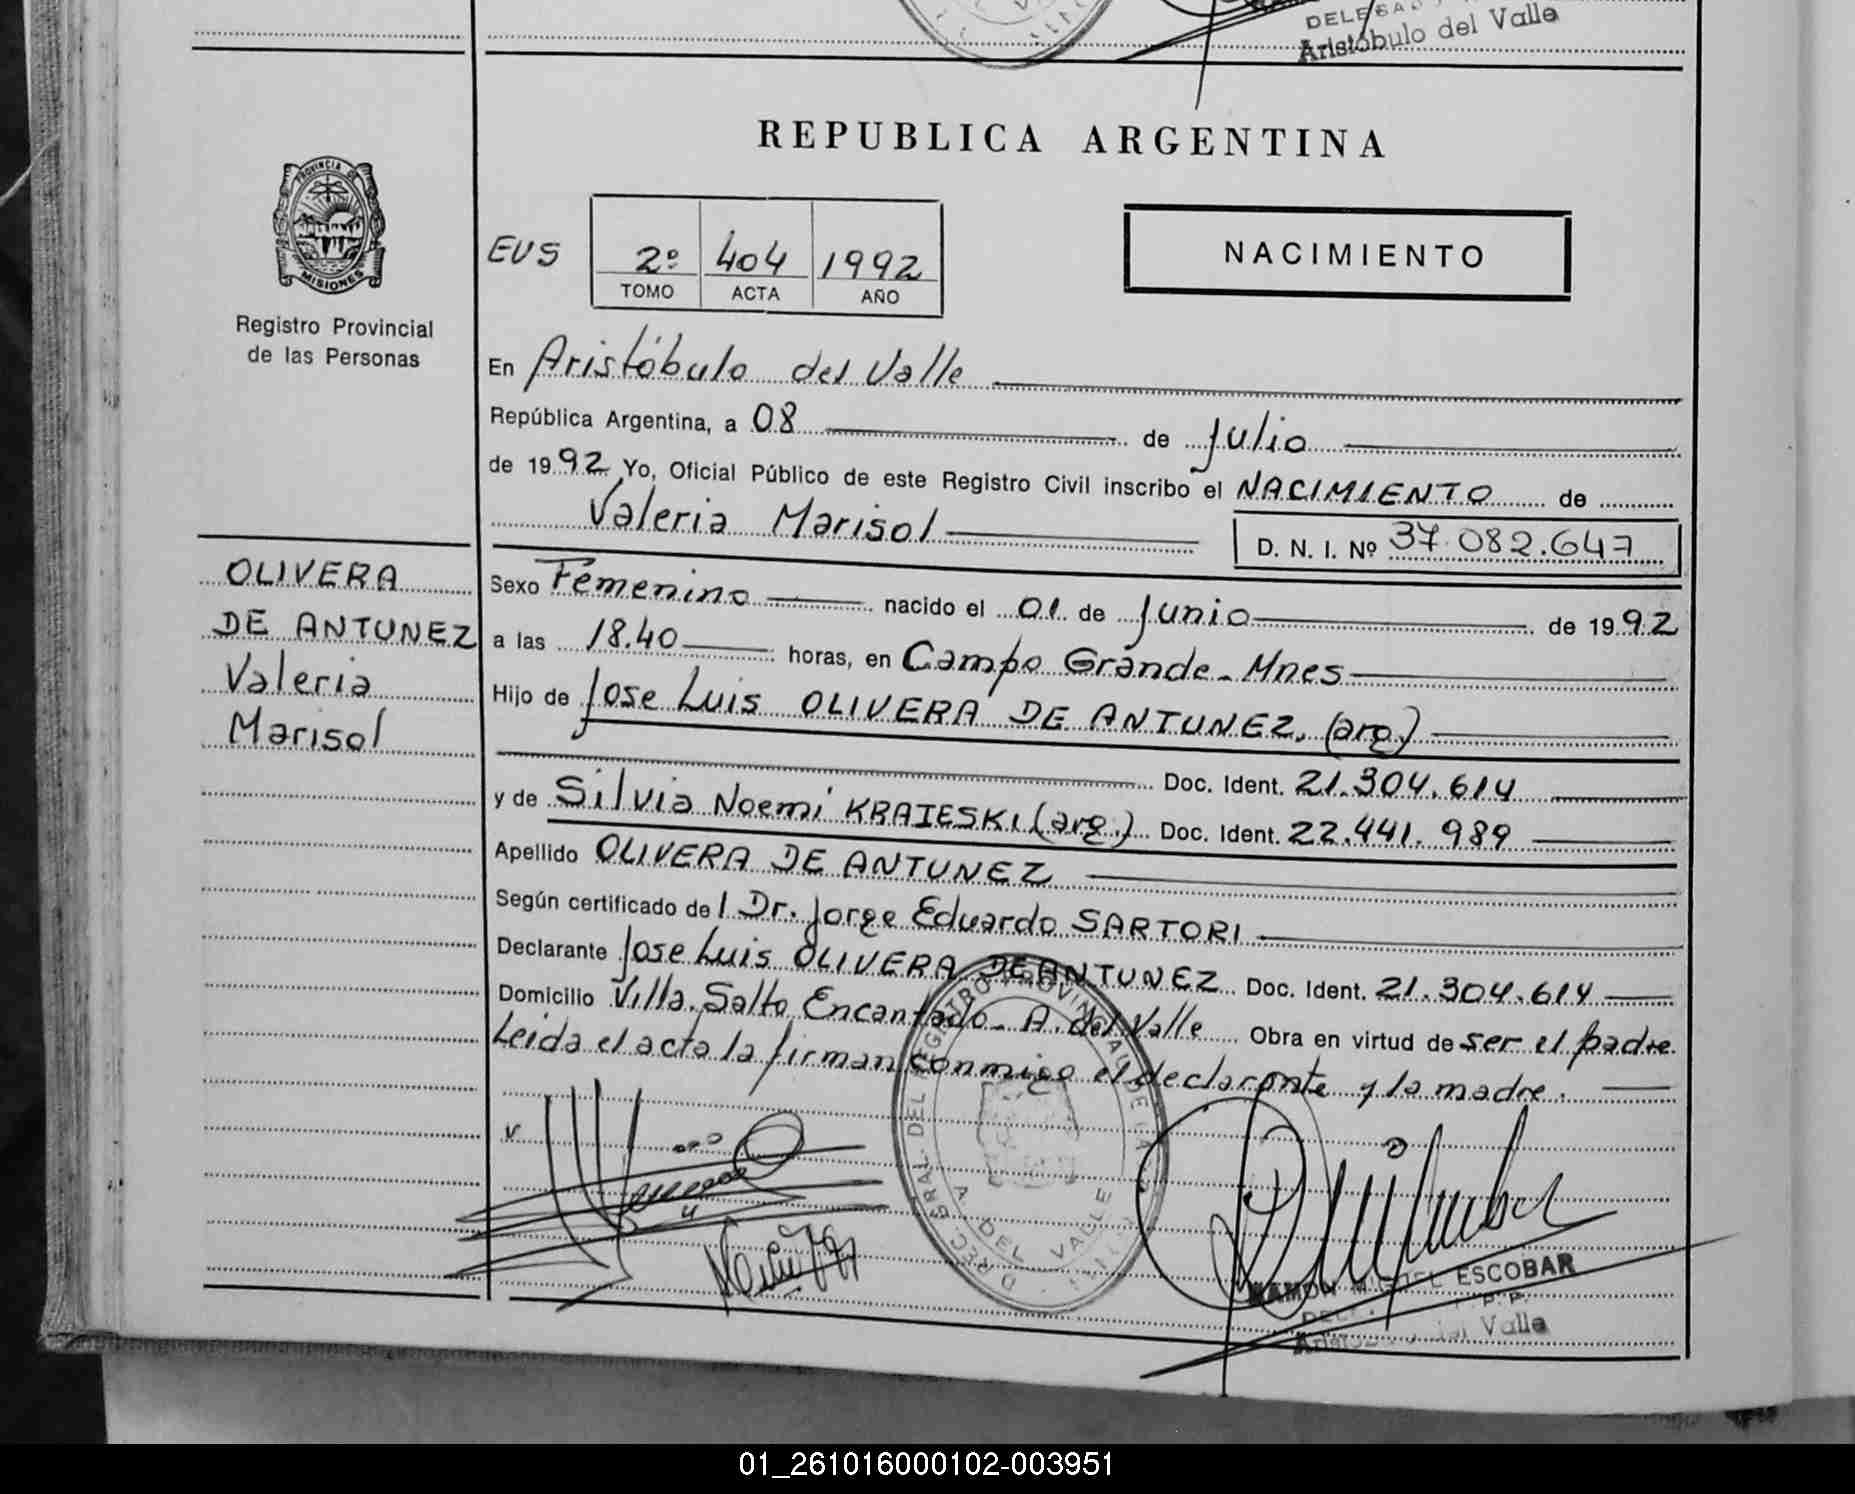 DELEGADO
Aristóbulo del Valle
REPUBLICA ARGENTINA
PROVINCIA DE
MISIONES
Registro Provincial
de las Personas
EUS
2º 404 1992
TOMO ACTA AÑO
NACIMIENTO
En Aristóbulo del Valle
República Argentina, a 08 de Julio
de 1992 Yo, Oficial Público de este Registro Civil inscribo el NACIMIENTO de
Valeria Marisol
D. N. I. Nº 37.082.647
OLIVERA
DE ANTUNEZ
Valeria
Marisol
Sexo Femenino nacido el 01 de Junio de 1992
a las 18.40 horas, en Campo Grande - Mnes
Hijo de Jose Luis OLIVERA DE ANTUNEZ. (arg.)
Doc. Ident. 21.304.614
y de Silvia Noemi KRAIESKI (arg.) Doc. Ident. 22.441.989
Apellido OLIVERA DE ANTUNEZ
Según certificado del Dr. Jorge Eduardo SARTORI
Declarante Jose Luis OLIVERA DE ANTUNEZ Doc. Ident. 21.304.614
Domicilio Villa Salto Encantado - A. del Valle Obra en virtud de ser el padre.
Leida el acta la firman conmigo el declarante y la madre.
DIREC. GRAL. DEL REGISTRO PROVINCIAL DE LA
A. DEL VALLE
RAMON MIGUEL ESCOBAR
Aristóbulo del Valle
01_261016000102-003951